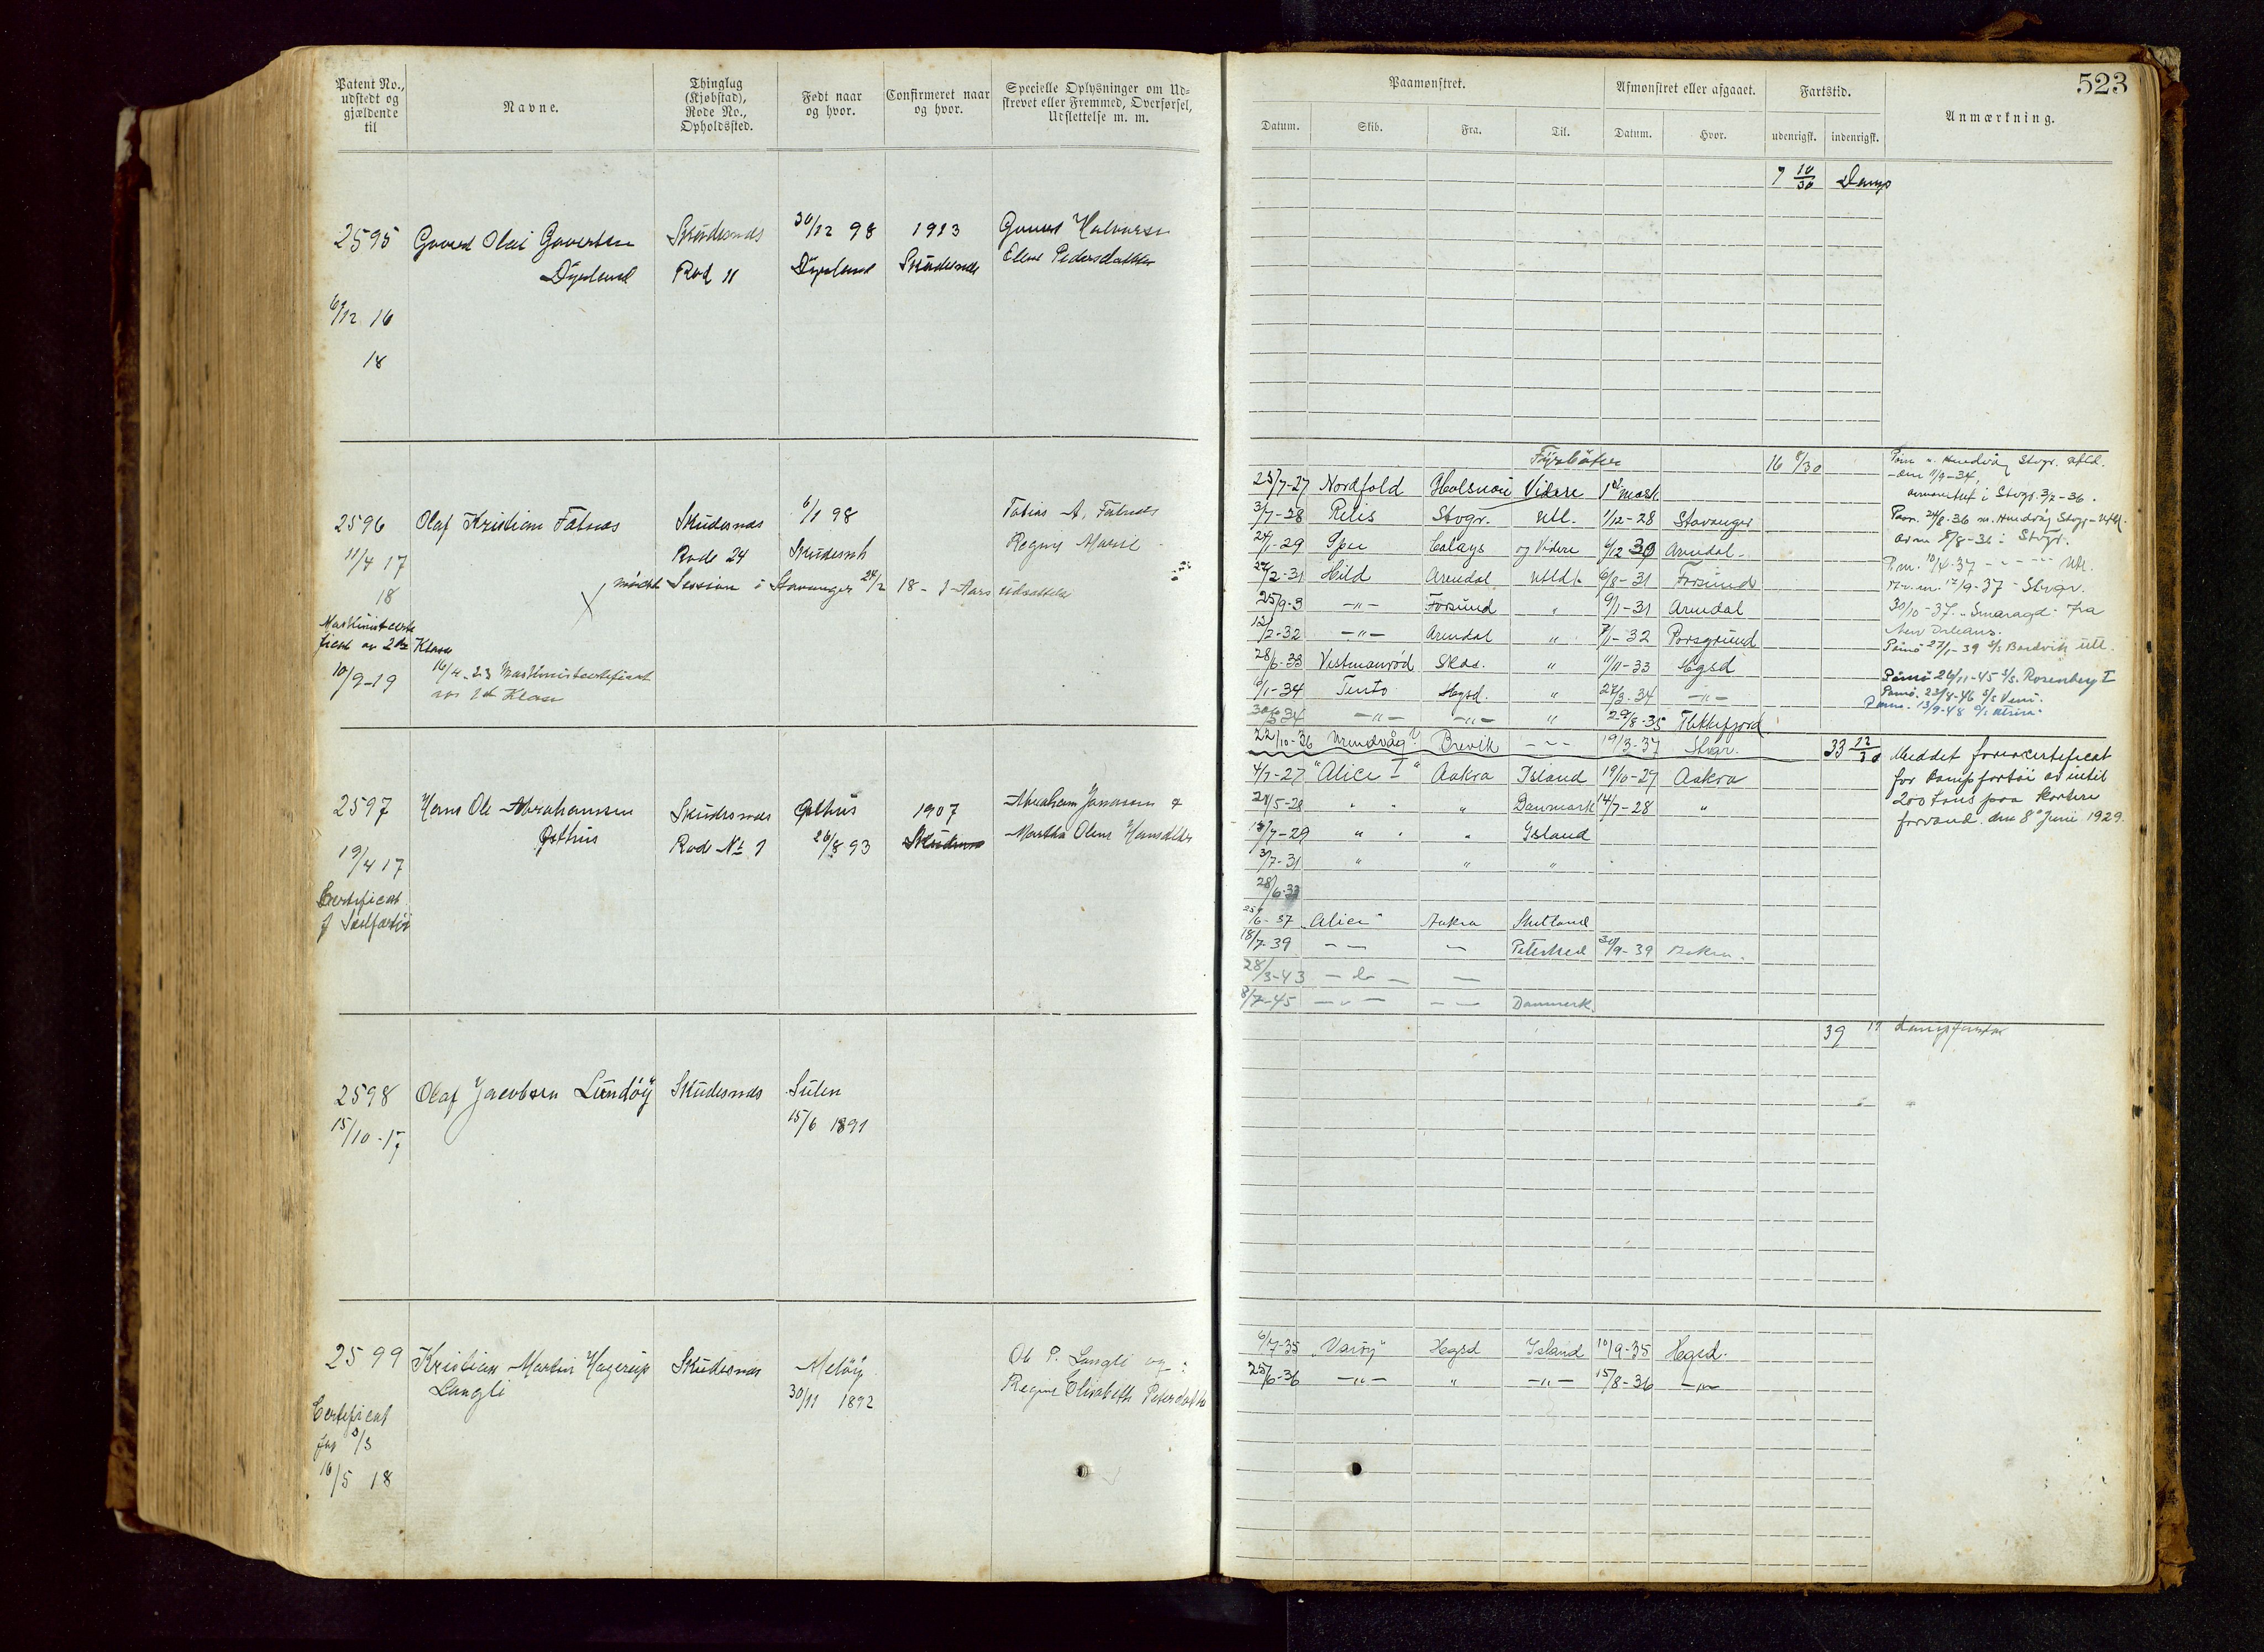 Patent No., udstedt og gjældende til
Navne.
Thinglag (Kjøbstad), Rode No., Opholdssted.
Født naar og hvor.
Confirmeret naar og hvor.
Specielle Oplysninger om Udskrevet eller Fremmed, Overførsel, Udslettelse m. m.
2595
6/12 16
18
Govert Olai Govertsen
Dyrland
Skudesnæs
Rod 11
30/12 98
Dyrland
1913
Skudesnæs
Govert Halvorsen
Ellen Pedersdatter
2596
11/4 17
18
Olaf Kristian Falnæs
Skudesnæs
Rode 24
6/1 98
Skudesnh
Tobias A. Falnæs
Regine Marie
mødte Session i Stavanger 24/2 18 - 1 Aars udsættelse
Maskinistcerti
ficat av 2den Klasse
10/9-19
16/4-23 Maskinistcertificat
av 1st Klasse
2597
19/4 17
Certificat
f Seilfartøi
Hans Ole Abrahamsen
Østhus
Skudesnæs
Rode No 1
Østhus
26/8 93
1907
Skudesnæs
Abraham Jonassen &
Martha Oline Hansdtter
2598
15/10-17
Olaf Jacobsen Lundøy
Skudesnæs
Sulen
15/6 1891
2599
Certificat
for S/S
16/5 18
Kristian Martin Hagerup
Langli
Skudesnæs
Meløy
30/11 1892
Ole P. Langli og
Regine Elisabeth Petersdatter
523
Paamønstret.
Afmønstret eller afgaaet.
Fartstid.
Anmærkning.
Datum.
Skib.
Fra.
Til.
Datum.
Hvor.
udenrigsk.
indenrigsk.
7 10/30 Damp
Fyrbøter
16 8/30
25/7-27 Nordfold Halsnøi Videre 1st mask
3/7-28 Relis Stvgr. Utl. 1/12-28 Stavanger
24/1-29 Spec Calays og Videre 6/12 30 Arendal
22/2-31 Hild Arendal Utld. 6/8-31 Forsund
25/9-3 -"- Forsund " 9/1-31 Arendal
12/2-32 -"- Arendal " 7/1-32 Porsgrund
28/6-33 Vestmanrød Skds. " 11/11-33 Hgsd
6/1-34 Tento Hgsd. " 27/3-34 -"-
30/6 34 -"- -"- " 29/8-35 Flekkefjord
22/10-36 Hundvåg Brevik - - - 19/3-37 Stvgr.
Påm m. Hundvåg Stvgr. utld.
den 11/9-34,
avmønstret i Stvgr. 3/2-36.
Påm. 24/8-36 m. Hundvåg Stvgr-Utld.
Avm 8/8-36 i Stvgr.
P.m. 10/4-37 - - - Utl.
Av.m. 12/9-37 - Stvgr.
30/10-37 "Smaragd" fra
New Orleans.
Påmø 27/1-39 S/S Bordvik utl.
Påmø 26/11-45 S/S. Rosenberg I
Påmø. 23/8-46 S/S Veni.
Påmø. 13/9-48 S/S Utsira.
33 12/30
4/7-27 "Alice I" Aakra Island 19/10-27 Aakra
21/5-28 " " " Danmark 14/7-28 "
13/7-29 " " " Island
3/7-31 " " "
28/6-33
25/6-37 "Alice" Aakra Shetland
18/7-39 - - - Peterhed 30/9-39 Aakra.
28/3-43 - do - -
8/7-45 - " - - - Danmark.
Meddet førercertificat
for Dampfartøi av intil
200 tons paa kortere
farvand. den 8de Juni 1929.
39 17 Dampfartøi
6/7-35 "Varøy" Hegsd Island 10/9-35 Hegsd.
25/6-36 -"- " -"- 15/8-36 -"-